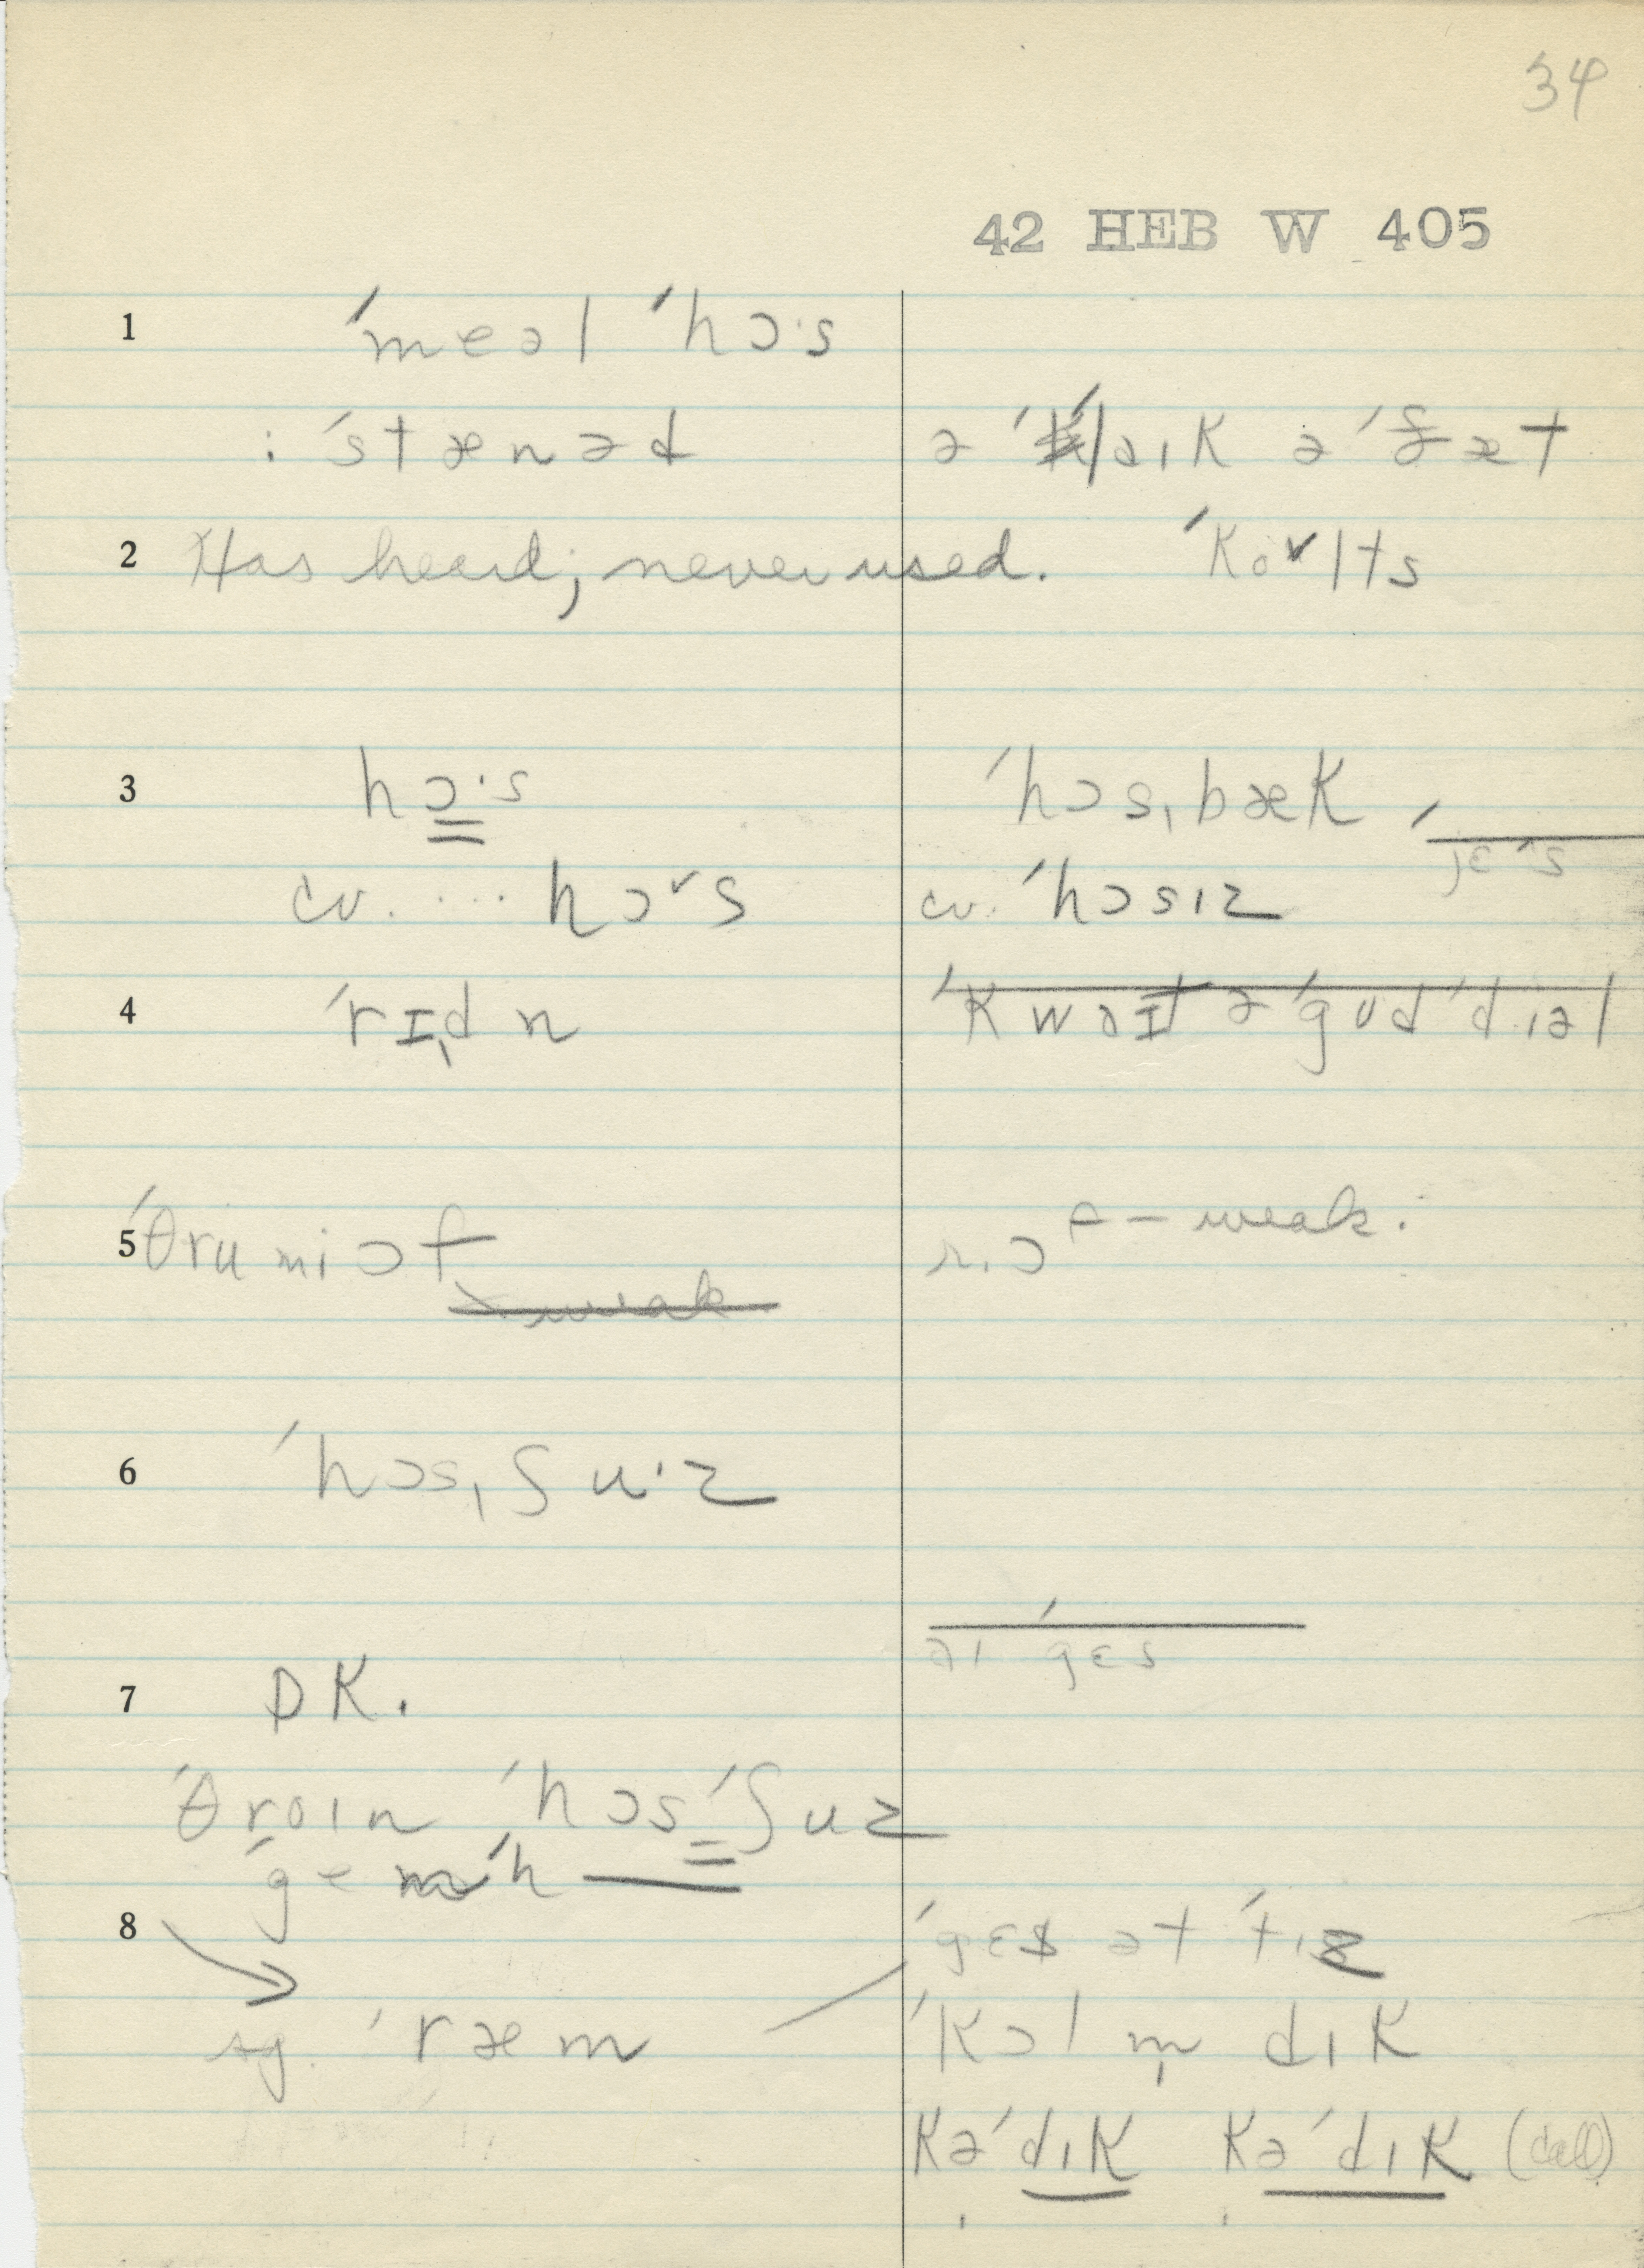 34
42 HEB W 405
1 ˈmeəl ˈhɔˑs
: ˈstænəd ə ˈlaɪk ə ˈfæt
2 Has heard; never used. ˈkoˇlts
3 hɔˑs ˈhɔsˌbæk
ˈjɛˑs
cv. .... hɔˇs cv. ˈhɔsɪz
4 ˈrɪˌdn ˈkwaɪt ə ˈgud ˈdiəl
5 ˈθru mi ɔf r. ɔf – weak.
weak
6 ˈhɔsˌʃuˑz
aɪ ˈgɛs
7 DK.
ˈθroɪn ˈhɔsˈʃuz
ˈge ˈh —
8 ˈgɛs ət ˈtɪz
sg. ˈræm ˈkɔl m̩ dɪk
kəˈdɪk kəˈdɪk (call)